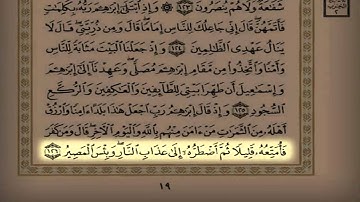 شَفَٰعَةٌ وَلَا هُمْ يُنصَرُونَ ١٢٣ ۞ وَإِذِ ٱبْتَلَىٰٓ إِبْرَٰهِـۧمَ رَبُّهُۥ بِكَلِمَٰتٍ
فَأَتَمَّهُنَّ ۖ قَالَ إِنِّى جَاعِلُكَ لِلنَّاسِ إِمَامًا ۖ قَالَ وَمِن ذُرِّيَّتِى ۖ قَالَ لَا
يَنَالُ عَهْدِى ٱلظَّٰلِمِينَ ١٢٤ وَإِذْ جَعَلْنَا ٱلْبَيْتَ مَثَابَةً لِّلنَّاسِ
وَأَمْنًا وَٱتَّخِذُوا۟ مِن مَّقَامِ إِبْرَٰهِـۧمَ مُصَلًّى ۖ وَعَهِدْنَآ إِلَىٰٓ إِبْرَٰهِـۧمَ
وَإِسْمَٰعِيلَ أَن طَهِّرَا بَيْتِىَ لِلطَّآئِفِينَ وَٱلْعَٰكِفِينَ وَٱلرُّكَّعِ
ٱلسُّجُودِ ١٢٥ وَإِذْ قَالَ إِبْرَٰهِـۧمُ رَبِّ ٱجْعَلْ هَٰذَا بَلَدًا ءَامِنًا وَٱرْزُقْ
أَهْلَهُۥ مِنَ ٱلثَّمَرَٰتِ مَنْ ءَامَنَ مِنْهُم بِٱللَّهِ وَٱلْيَوْمِ ٱلْءَاخِرِ ۖ قَالَ وَمَن كَفَرَ
فَأُمَتِّعُهُۥ قَلِيلًا ثُمَّ أَضْطَرُّهُۥٓ إِلَىٰ عَذَابِ ٱلنَّارِ ۖ وَبِئْسَ ٱلْمَصِيرُ ١٢٦
١٩